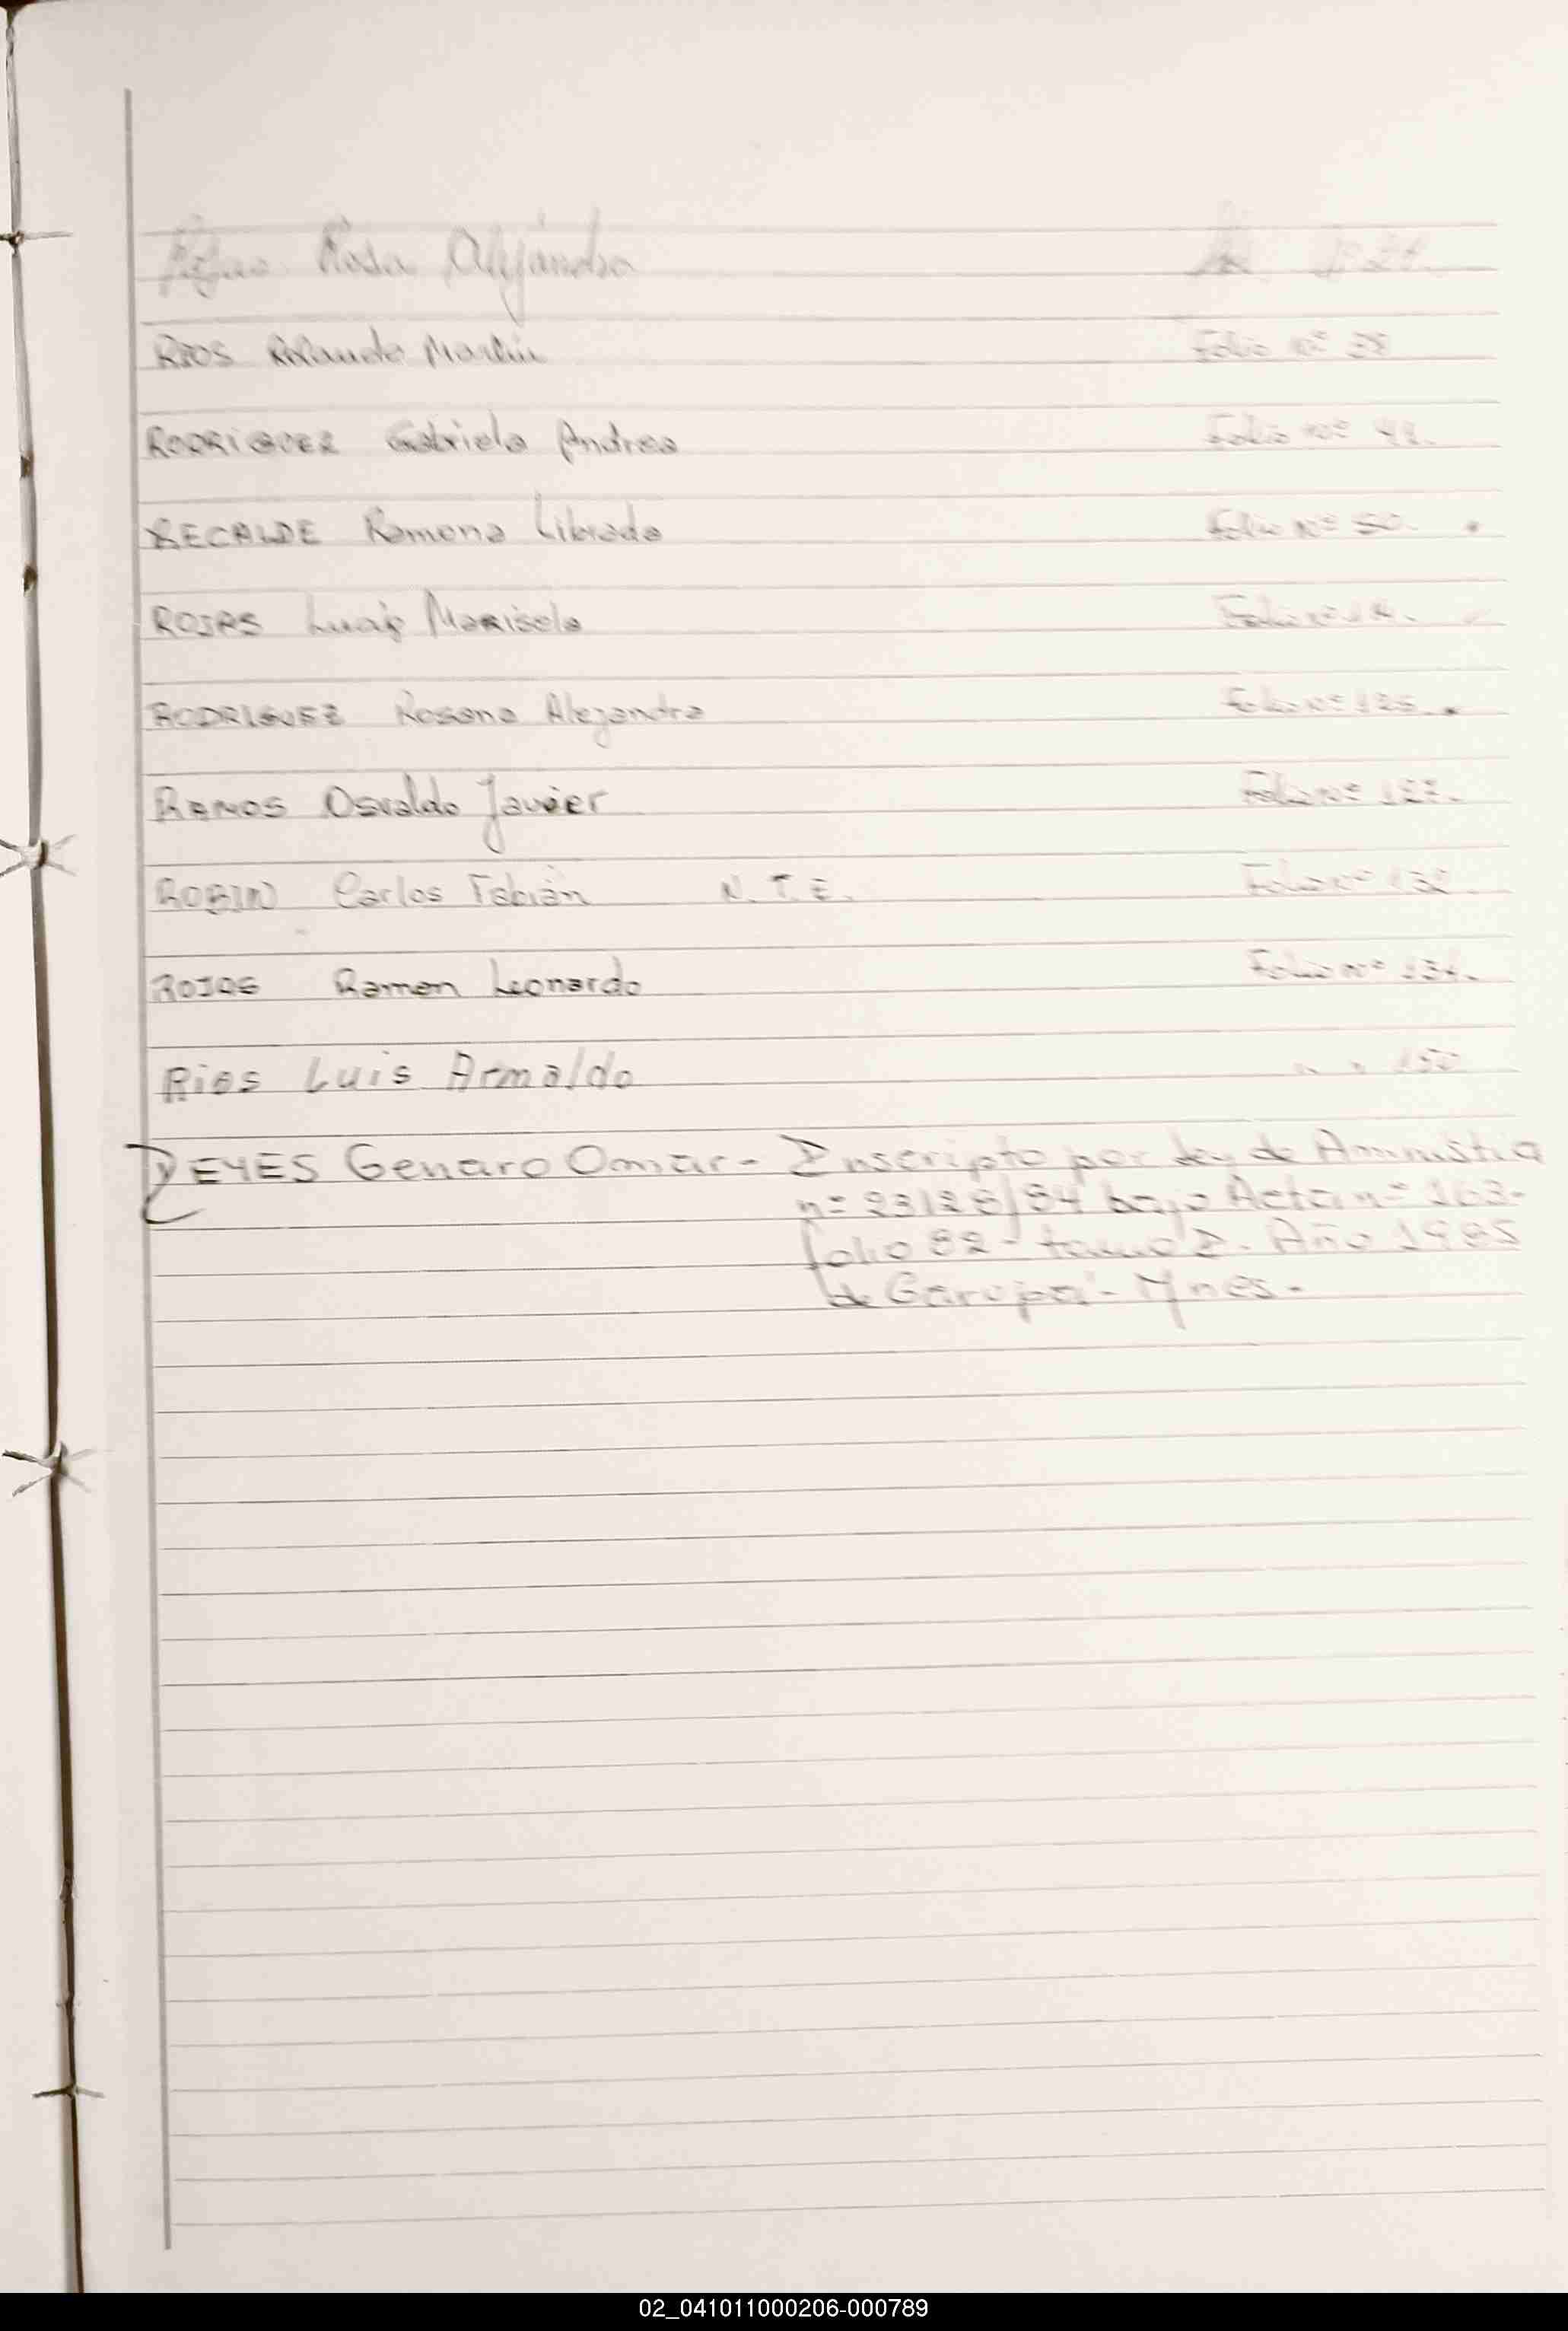 Rojas Rosa Alejandra
RIOS Rolando Martin Folio nº 38
RODRIGUEZ Gabriela Andrea Folio nº 42.
RECALDE Ramona Librada Folio nº 50.
ROJAS Marisela Folio nº
RODRIGUEZ Rosana Alejandra Folio nº 125.
RAMOS Osvaldo Javier Folio nº 127.
ROBIN Carlos Fabián N.T.E. Folio nº 132.
ROJAS Ramon Leonardo Folio nº 134.
Rios Luis Arnaldo " " 150
REYES Genaro Omar - Inscripto por Ley de Amnistia
nº 23128/84 bajo Acta nº 163-
folio 82 - tomo I. Año 1985
de Garupá - Mnes.-
02_041011000206-000789